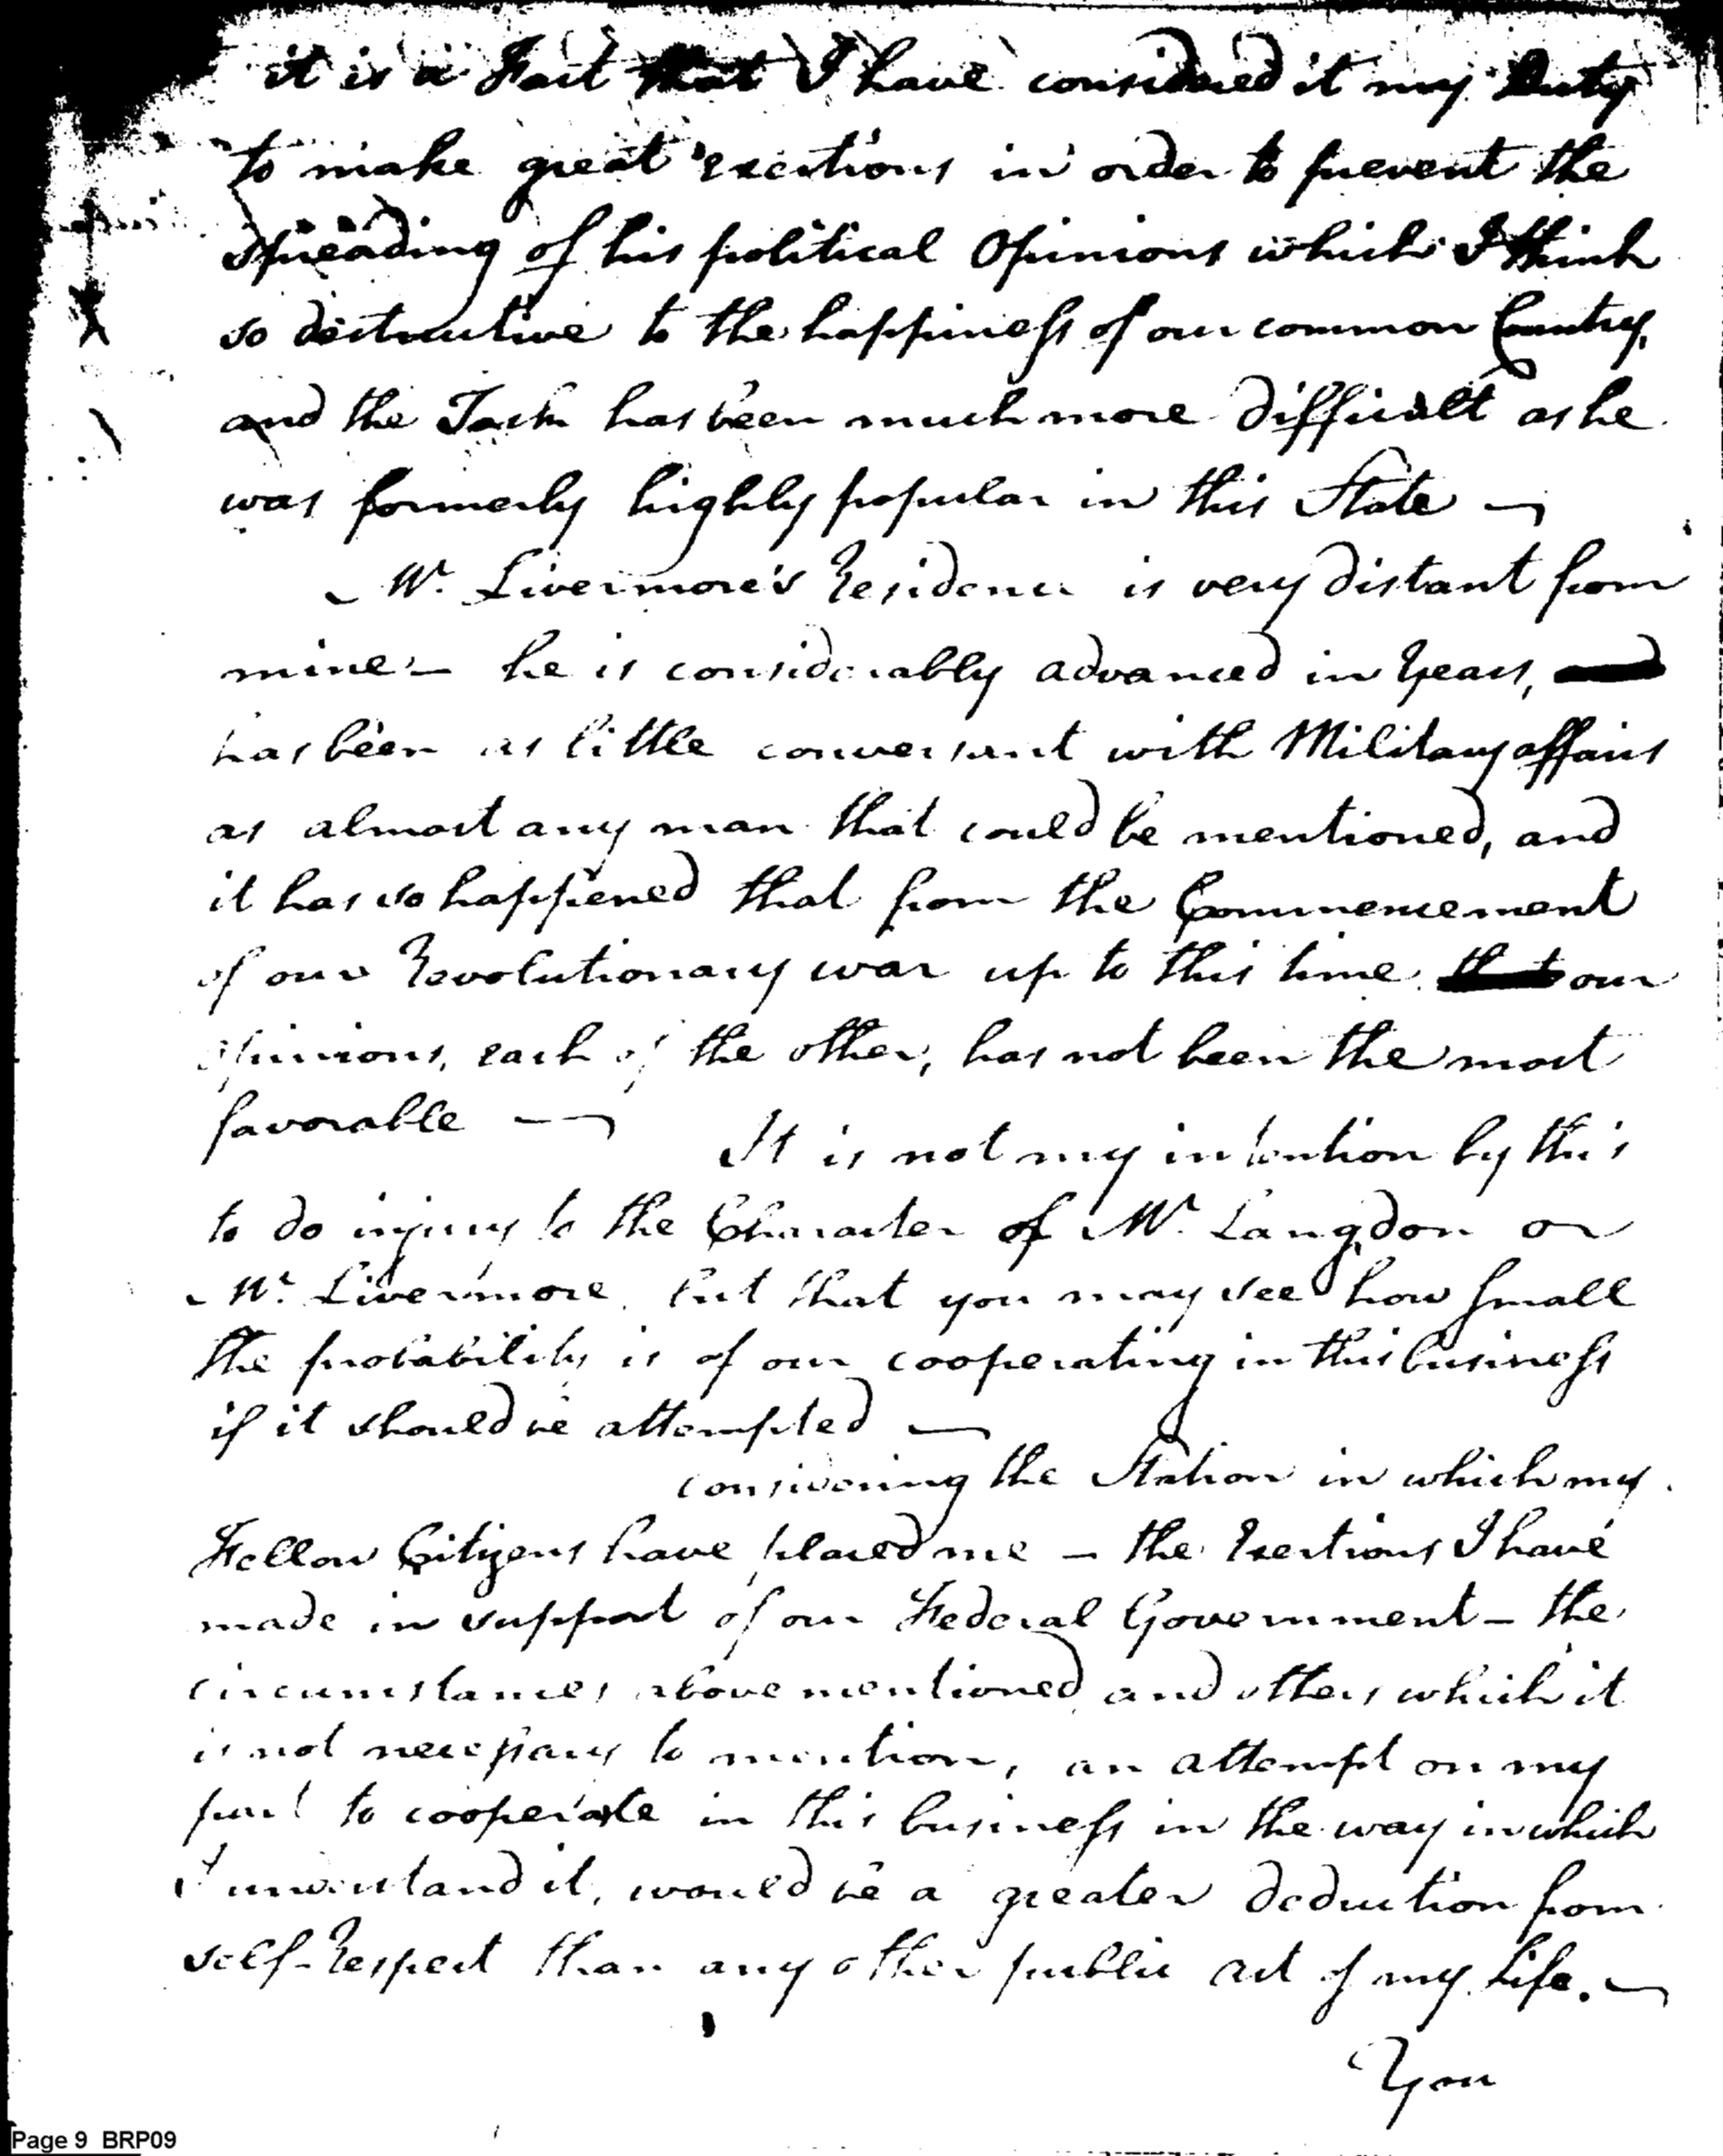 it is a Fact that I have considered it my Duty
to make great exertions in order to prevent the
spreading of his political Opinions which I think
so destructive to the happiness of our common Country,
and the Task has been much more difficult as he
was formerly highly popular in this State —
Mr. Livermore's Residence is very distant from
mine — he is considerably advanced in Years,
has been as little conversant with Military affairs
as almost any man that could be mentioned, and
it has so happened that from the Commencement
of our Revolutionary war up to this time that our
opinions, each of the other, has not been the most
favorable —
It is not my intention by this
to do injury to the Character of Mr. Langdon or
Mr. Livermore, but that you may see how small
the probability is of our cooperating in this business
if it should be attempted —
considering the Station in which my
Fellow Citizens have placed me — the Exertions I have
made in support of our Federal Government — the
circumstances above mentioned and others which it
is not necessary to mention, an attempt on my
part to cooperate in this business in the way in which
I understand it, would be a greater deduction from
self-Respect than any other public act of my Life. —
You
Page 9 BRP09